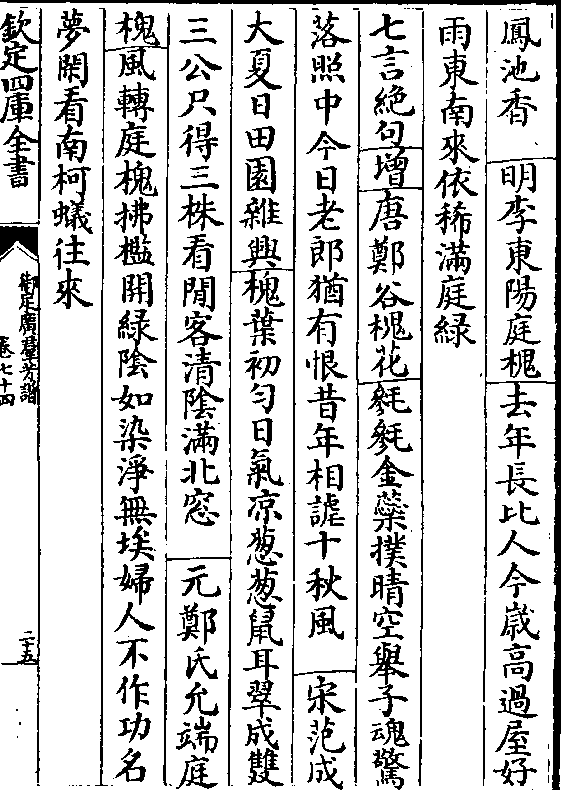 鳳池香　明李東陽庭槐去年長比人今歲高過屋好
雨東南來依稀滿庭綠
七言絶句增唐鄭谷槐花毿毿金蘂撲晴空舉子魂驚
落照中今日老郎猶有恨昔年相謔十秋風　宋范成
大夏日田園雜興槐葉初勻日氣凉葱葱鼠耳翠成雙
三公只得三株看閒客清陰滿北窓　元鄭氏允端庭
槐風轉庭槐拂檻開綠陰如染淨無埃婦人不作功名
夢閑看南柯蟻往來
欽定四庫全書
御定廣羣芳譜
卷七十四
二十五